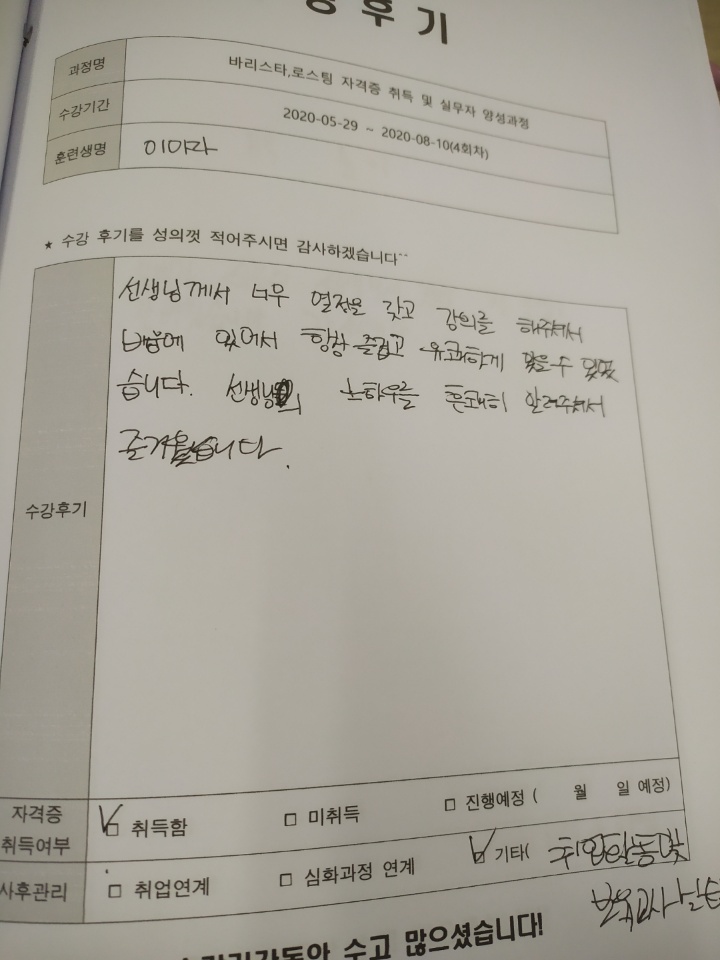 강후기
과정명 바리스타,로스팅 자격증 취득 및 실무자 양성과정
수강기간 2020-05-29 ~ 2020-08-10(4회차)
훈련생명 이아라
★ 수강 후기를 성의껏 적어주시면 감사하겠습니다^^
선생님께서 너무 열정을 갖고 강의를 해주셔서
배움에 있어서 항상 즐겁고 유쾌하게 맞을 수 있었
습니다. 선생님의 노하우를 흔쾌히 알려주셔서
즐거웠습니다.
수강후기
자격증
취득여부
☑ 취득함 □ 미취득 □ 진행예정 ( 월 일 예정)
사후관리 □ 취업연계 □ 심화과정 연계 ☑ 기타( 취업활동 및
수강기간동안 수고 많으셨습니다!